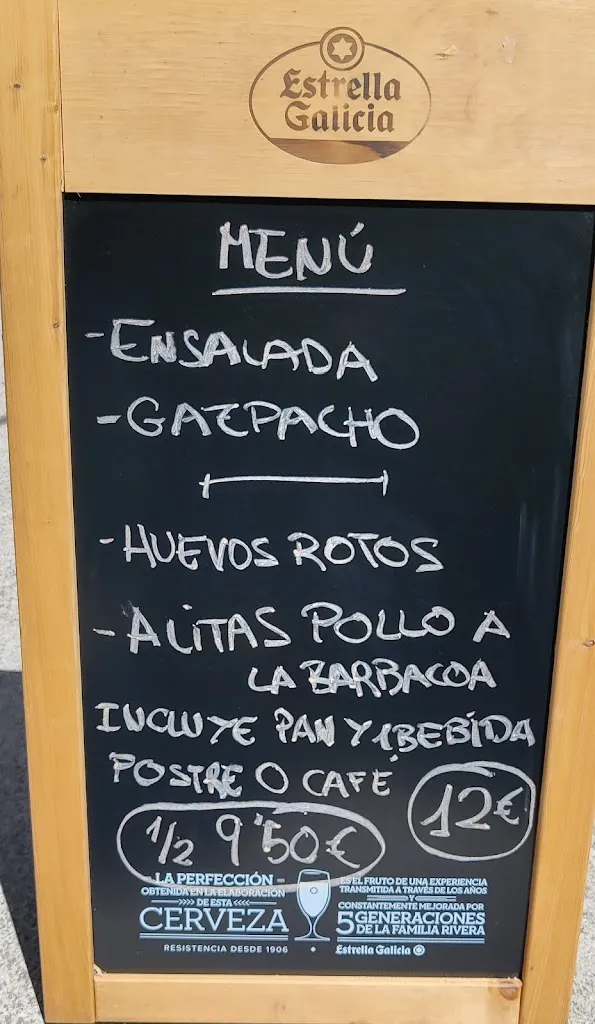 Estrella
Galicia
MENÚ
-ENSALADA
-GAZPACHO
-HUEVOS ROTOS
-ALITAS POLLO A
LA BARBACOA
INCLUYE PAN Y 1 BEBIDA
POSTRE O CAFÉ
12€
1/2 9'50€
LA PERFECCIÓN
OBTENIDA EN LA ELABORACIÓN
DE ESTA
CERVEZA
RESISTENCIA DESDE 1906
ES EL FRUTO DE UNA EXPERIENCIA
TRANSMITIDA A TRAVÉS DE LOS AÑOS
Y
CONSTANTEMENTE MEJORADA POR
5 GENERACIONES
DE LA FAMILIA RIVERA
Estrella Galicia